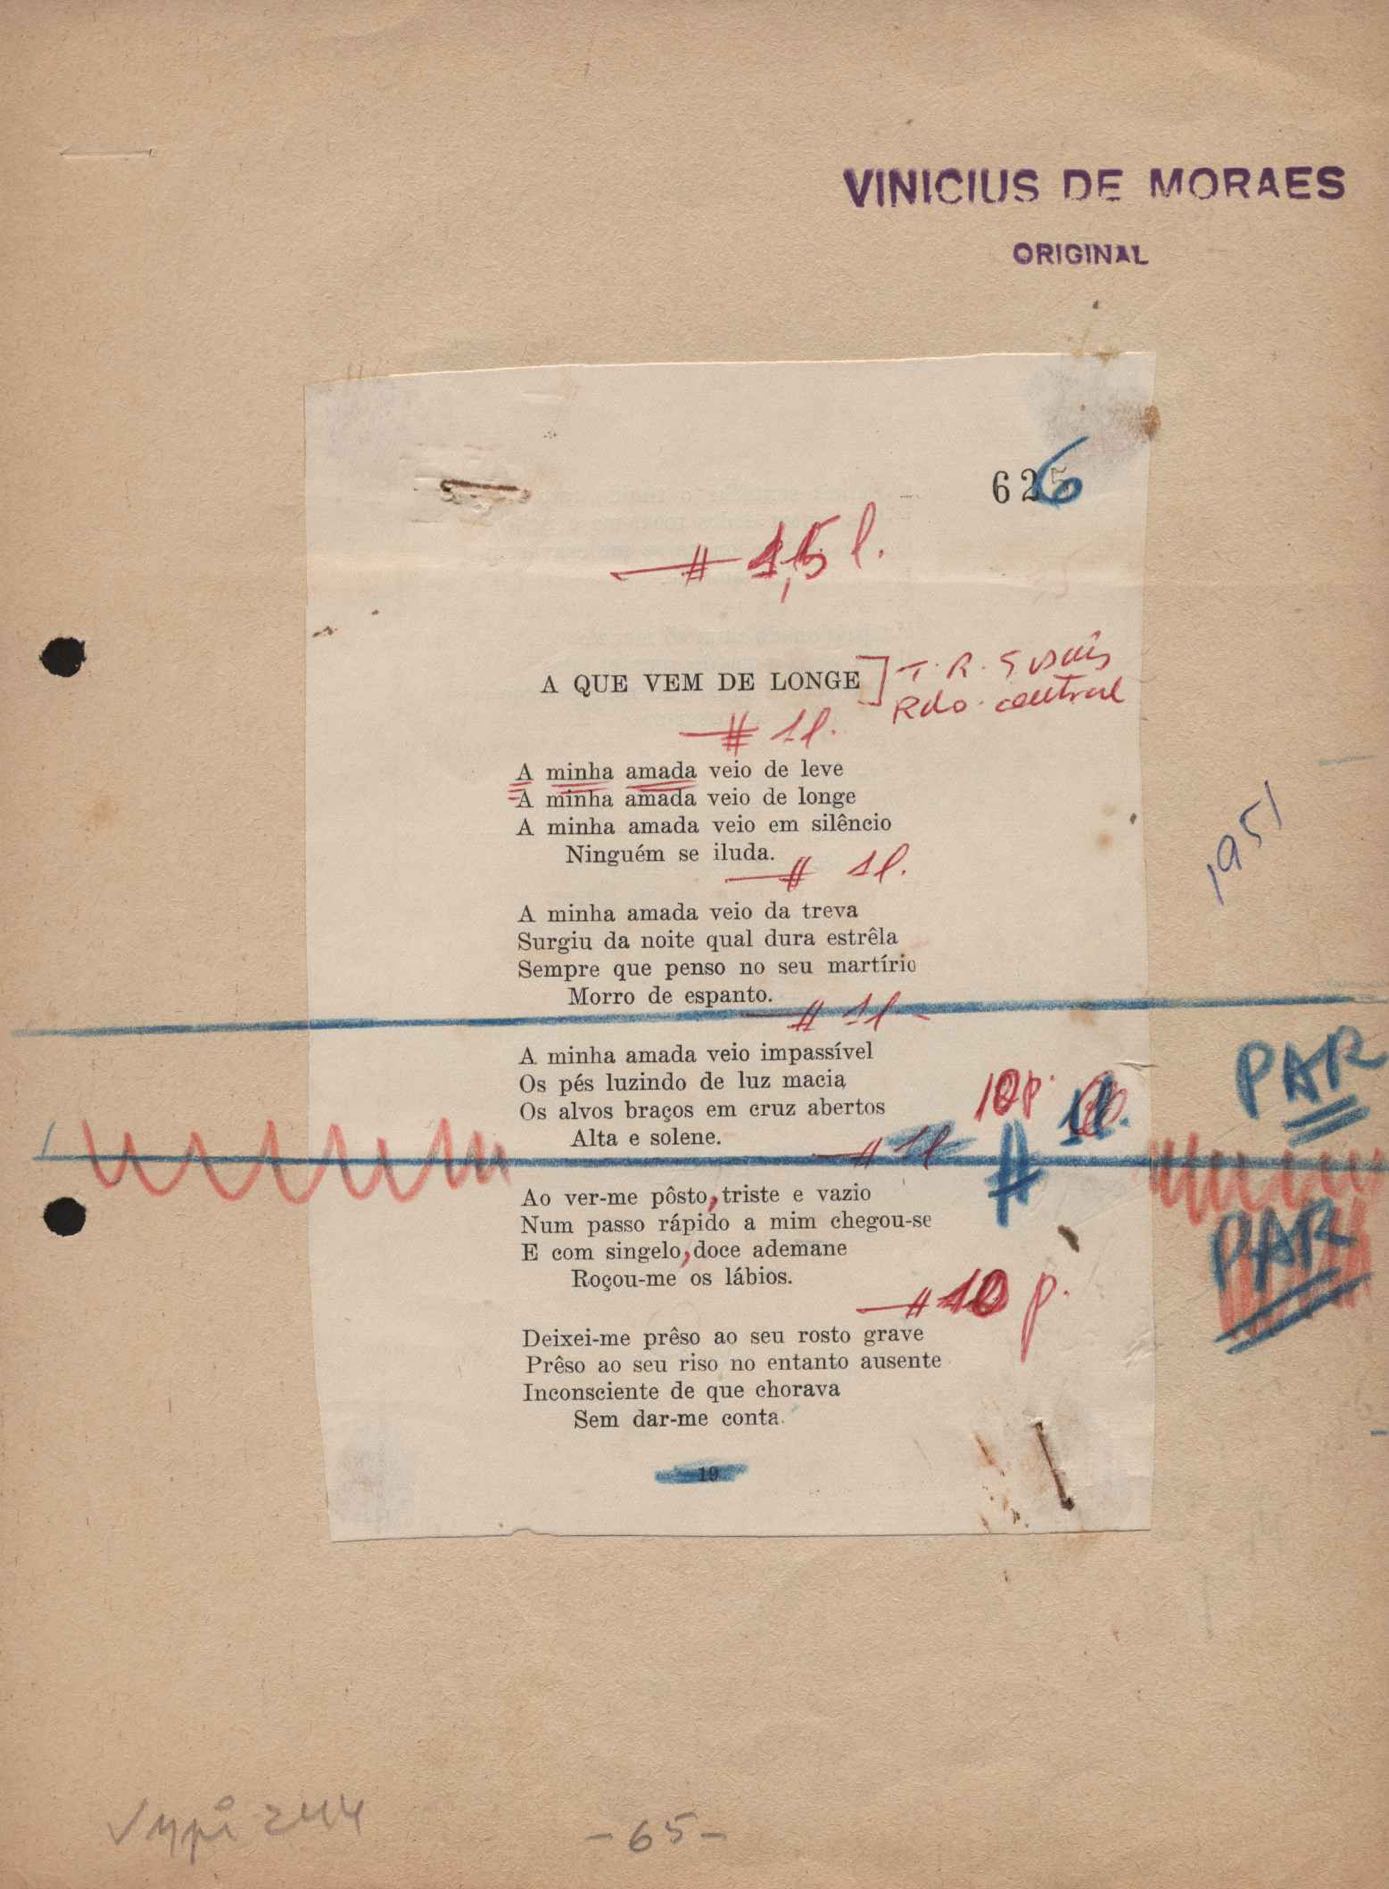 VINICIUS DE MORAES
ORIGINAL
626
# 1,5 l.
A QUE VEM DE LONGE
T. R.
Rdo. central
# 1l.
A minha amada veio de leve
A minha amada veio de longe
A minha amada veio em silêncio
Ninguém se iluda.
# 1l.
1951
A minha amada veio da treva
Surgiu da noite qual dura estrêla
Sempre que penso no seu martírio
Morro de espanto.
# 1l
A minha amada veio impassível
Os pés luzindo de luz macia
Os alvos braços em cruz abertos
Alta e solene.
# 1l
10p.
# 1l.
PAR
Ao ver-me pôsto, triste e vazio
Num passo rápido a mim chegou-se
E com singelo, doce ademane
Roçou-me os lábios.
PAR
# 10 p.
Deixei-me prêso ao seu rosto grave
Prêso ao seu riso no entanto ausente
Inconsciente de que chorava
Sem dar-me conta.
19
244
- 65 -